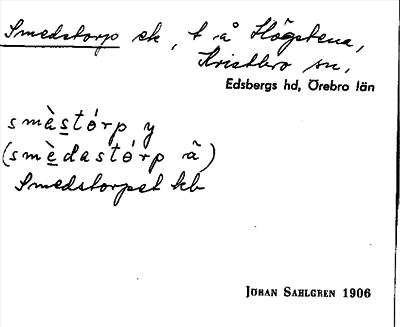 Smedstorp ek, t. å Högstena,
Kristbro sn,
Edsbergs hd, Örebro län
smàstórp y
(smèdastórp ã)
Smedstorpet kb
JÖRAN SAHLGREN 1906